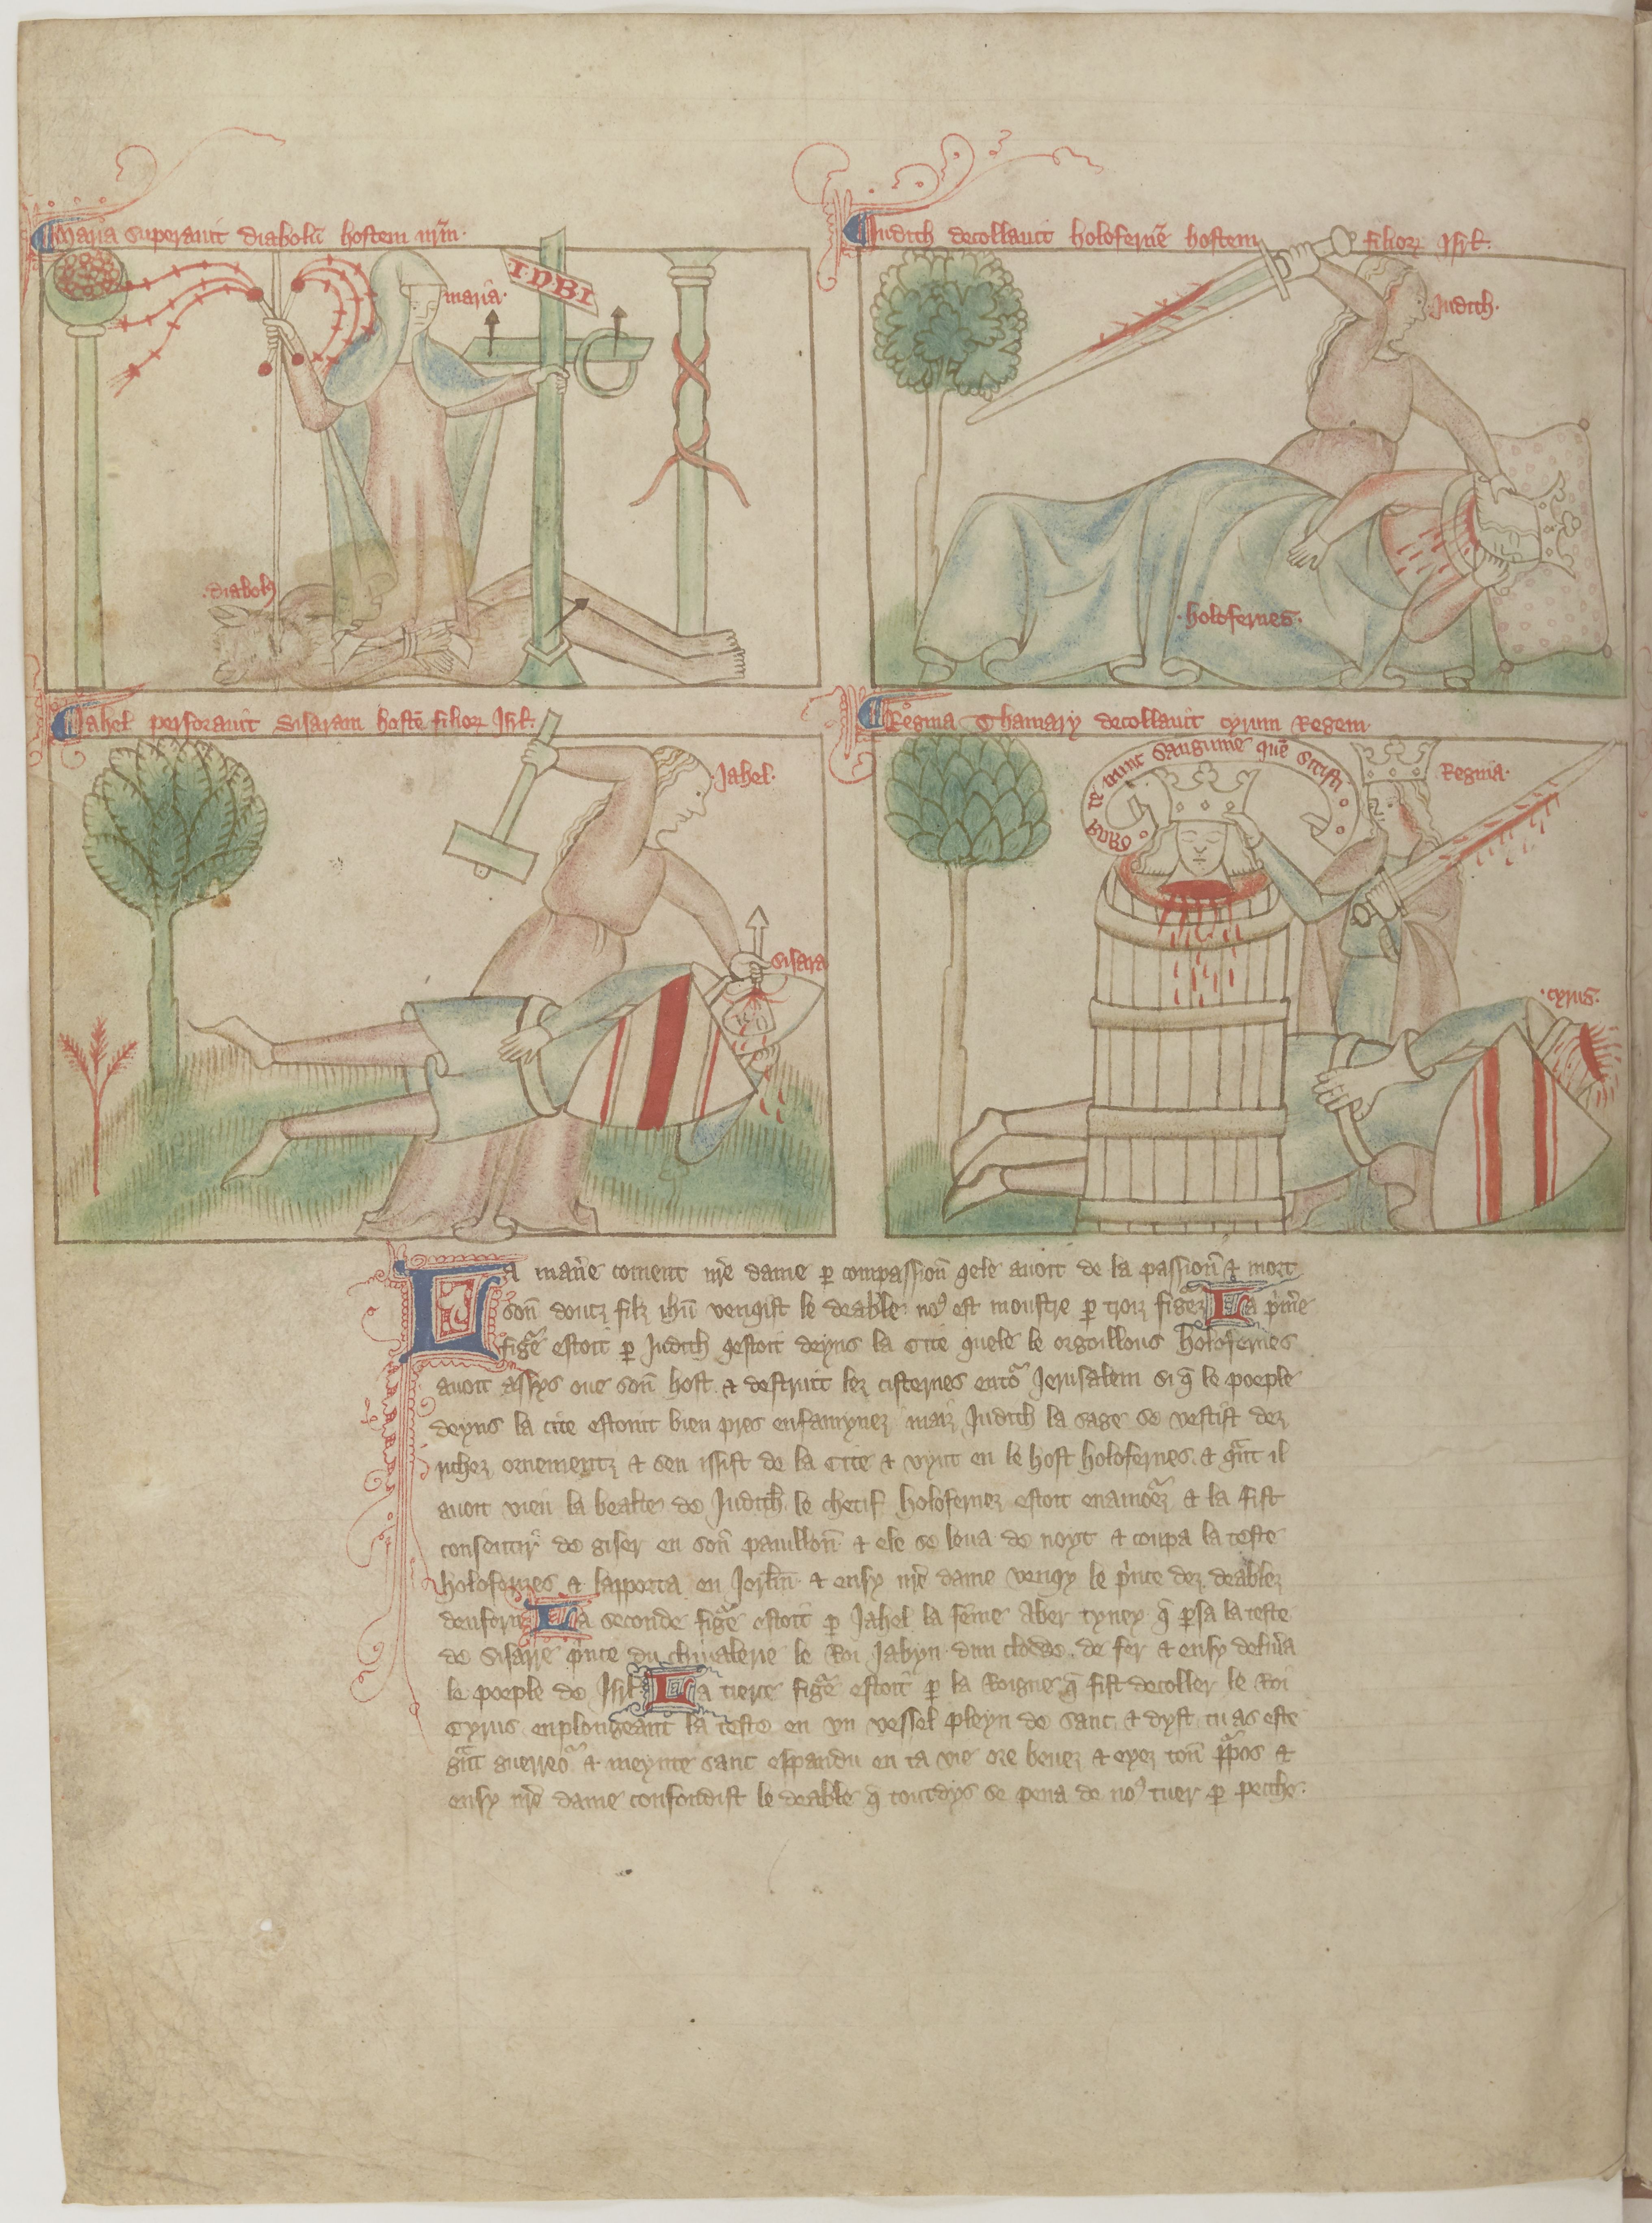 Maria superavit diabolū hostem nr̄m·
maria·
IDBI
·diabolꝰ
Iudith decollavit holofernē hostem filioꝝ Isrl̄·
Iudith·
·holofernes·
Iahel perforavit Sisaram hostē filioꝝ Isrl̄·
Iahel·
Sisara
Regina Thamary decollavit cyrum Regem·
te nunc sanguine quē sitisti
Regina·
·cyrus·
La man̄e coment nr̄e dame ꝑ compassion̄ qele avoit de la passion̄ ⁊ mort
son̄ doutz filz ihū venqist le deable· noꝰ est moustre ꝑ troiz figez La p̄me
fige estoit ꝑ Judith qestoit deyns la Cite quele le orgoillous Holofernes
avoit assys ove son̄ host· ⁊ destruit lez cisternes ento Jerusalem si q̄ le poeple
deyns la cite estoint bien pres enfamynez maiz Judith la sage se vestist dez
richez ornementz ⁊ sen issist de la Cite ⁊ vynt en le host holofernes· ⁊ qnt il
avoit vieu la bealte de Judith· le chetif holofernez estoit enamoez ⁊ la fist
consentir de giser en son̄ pauillon̄· ⁊ ele se leva de noyt ⁊ coupa la teste
holofernes ⁊ lapporta en Jerl̄m· ⁊ ensy nr̄e dame venqy le p̄nce dez deablez
denfern La seconde fige estoit ꝑ Jahel la fēme Aber cyney q̄ ꝑsa la teste
de Sisarre p̄nce du chivalerie le Roi Jabyn· dun clowe de fer ⁊ ensy deliv̄a
le poeple de Isrl̄ La tierce fige estoit ꝑ la Roigne q̄ fist decoller le Roi
Cyrus enplongeant la teste en vn vessel pleyn de sanc· ⁊ dyst· tu as este
gnt guerreo ⁊ meynte sanc espandu en ta vie ore bevez ⁊ eyez ton̄ ppos ⁊
ensy nr̄e dame confondist le deable q̄ toutdys se pena de noꝰ tuer ꝑ pecche·